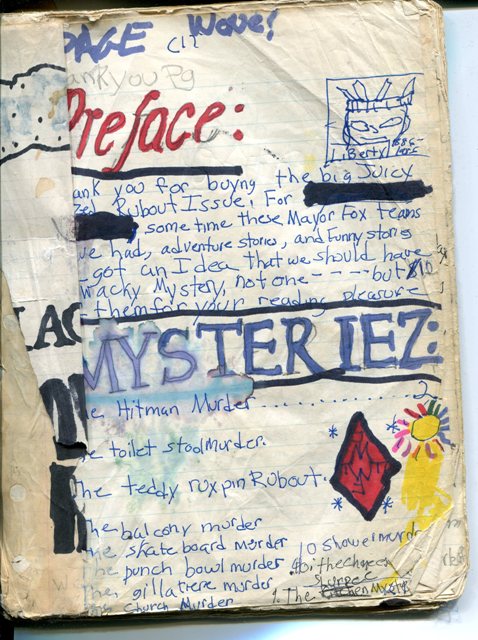 PAGE Wove!
ank you Pg
Preface:
Liberty
ank you for buyng the big Juicy
zed Rubout Issue! For
some time these Mayor Fox teams
ve had, adventure stories, and Funny storis
got an Idea that we should have
Wacky Mystery, not one ---- but $10
them for your reading pleasure
MYSTERIEZ:
he Hitman Murder .............. 2
he toilet stool murder.
he teddy ruxpin Rubout.
The balcony murder
the skate board murder
10 Shower murdr
The punch bowl murder
The gillatiere murder
Slurpee
The Church Murder
9. The Kitchen Mystry